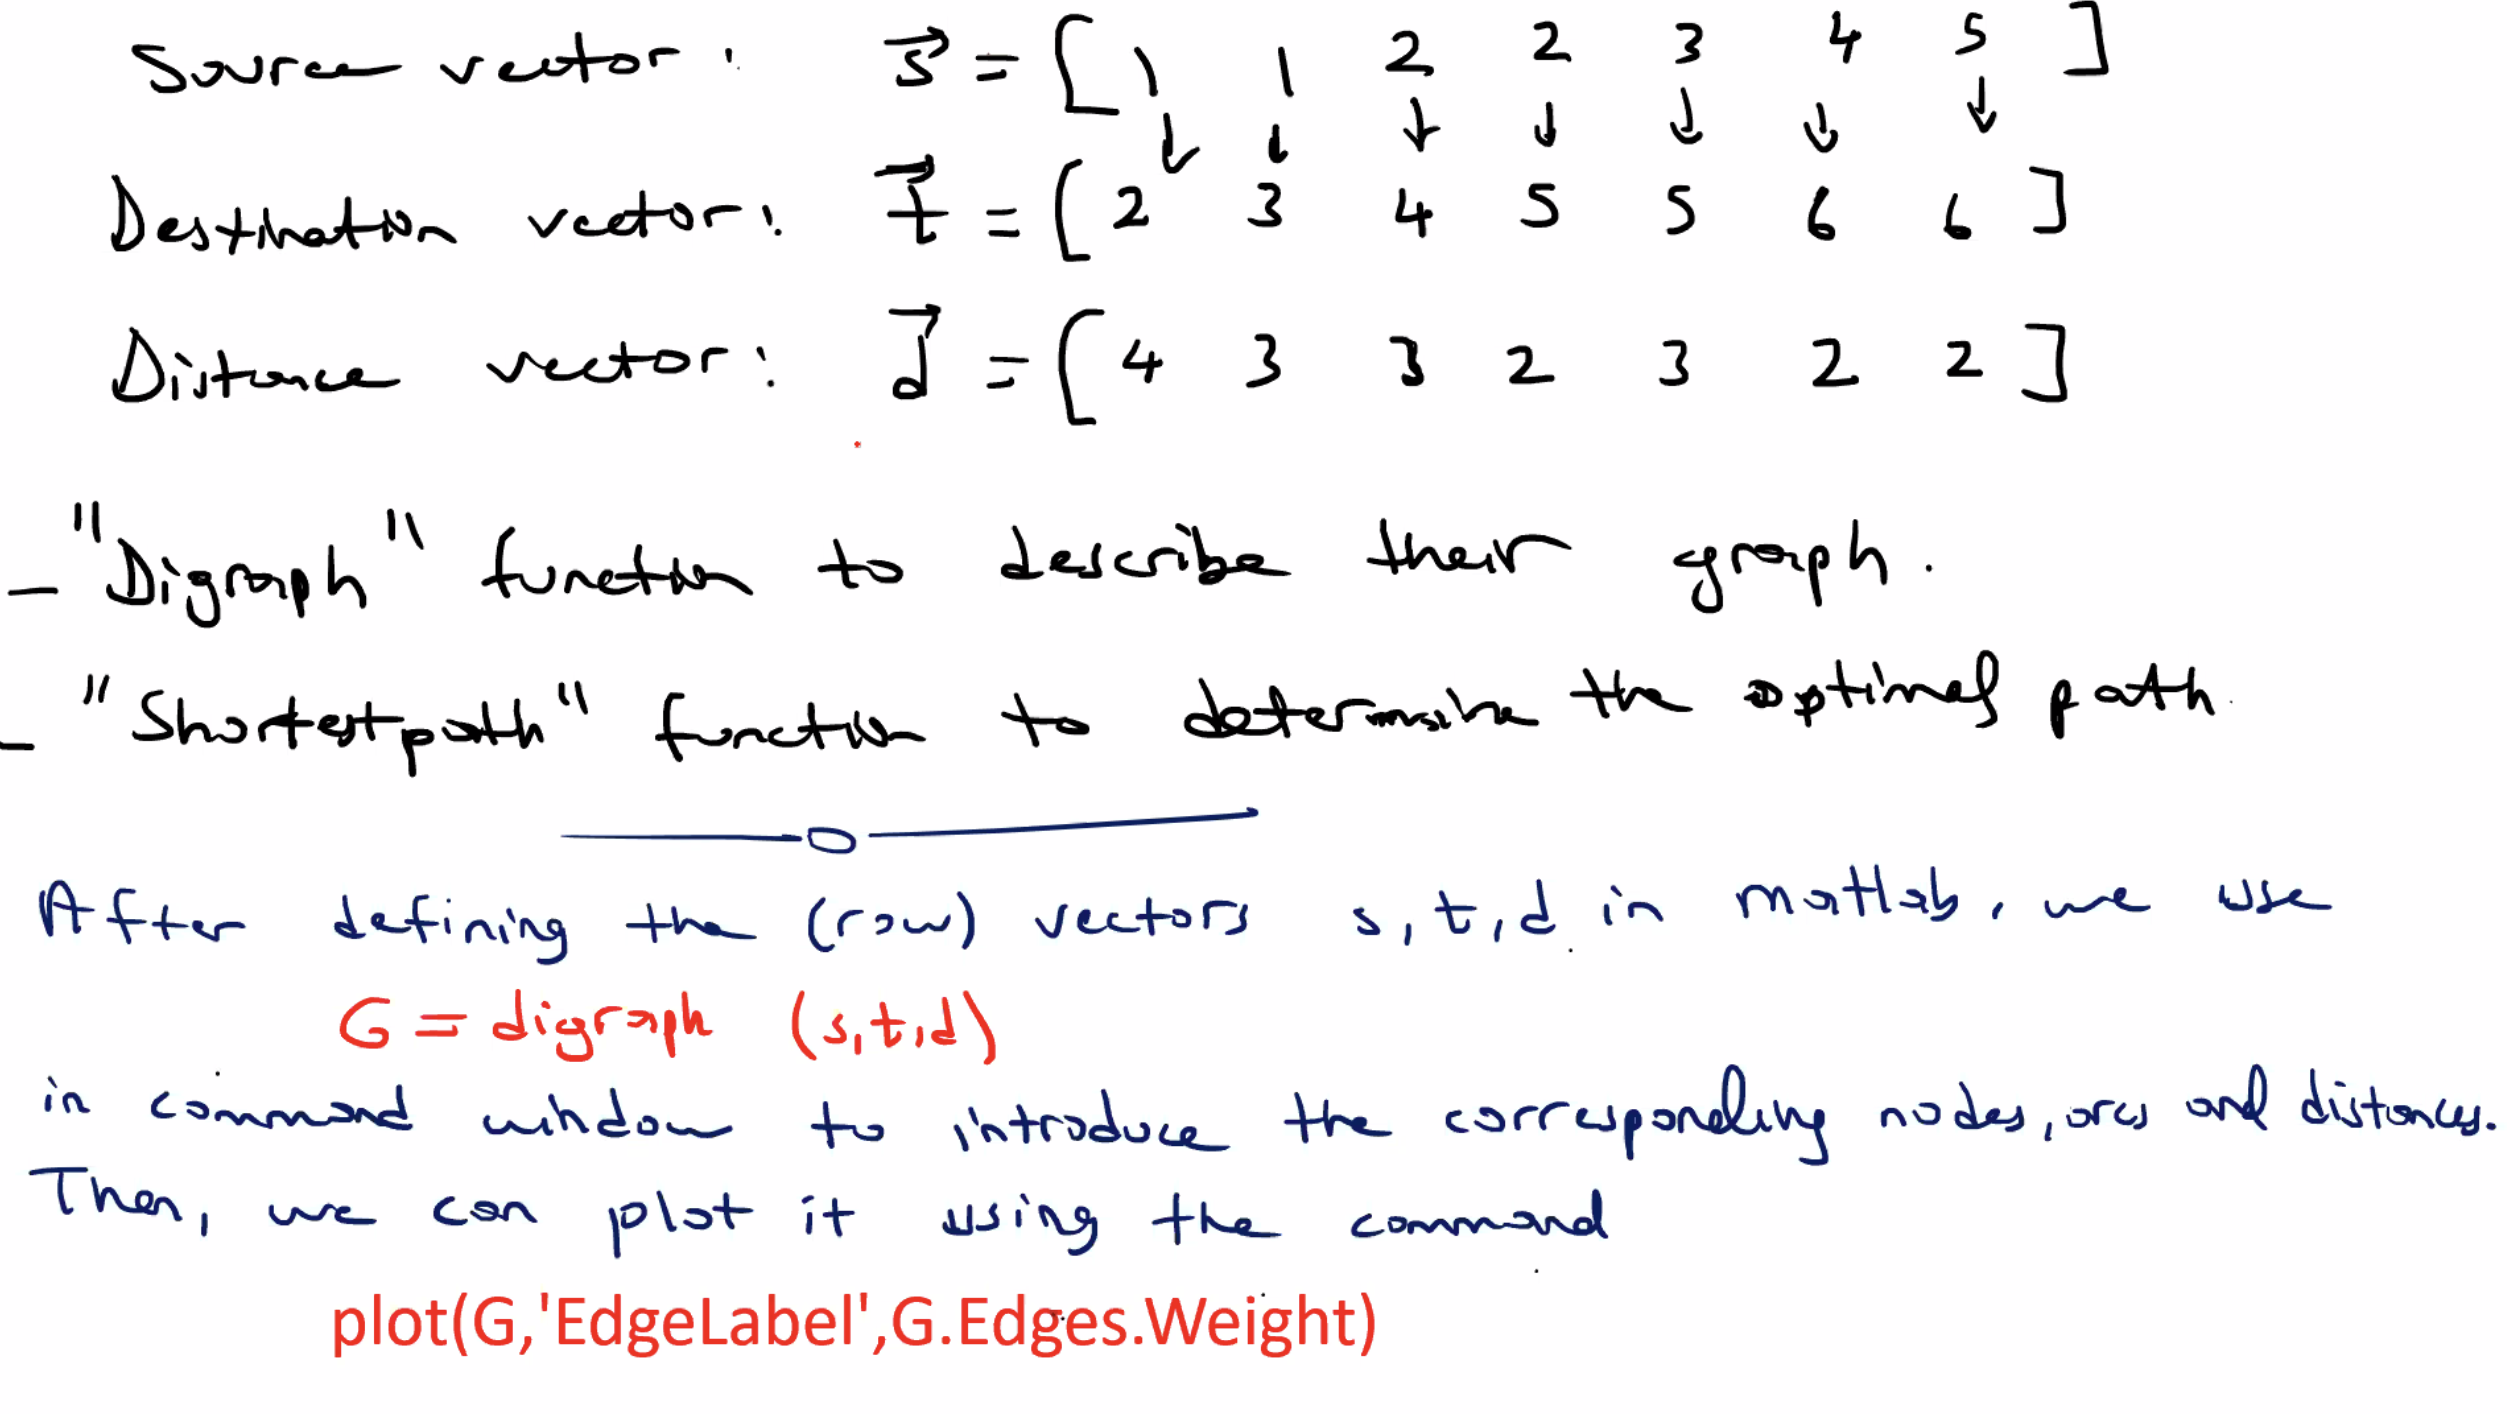 Source vector: s = [ 1 1 2 2 3 4 5 ]
Destination vector: t = [ 2 3 4 5 5 6 6 ]
Distance vector: d = [ 4 3 3 2 3 2 2 ]
- "Digraph" function to describe their graph.
- "Shortestpath" function to determine the optimal path.
After defining the (row) vectors s, t, d in matlab, we use
G = digraph (s,t,d)
in command window to introduce the corresponding nodes, arcs and distances.
Then, we can plot it using the command
plot(G,'EdgeLabel',G.Edges.Weight)